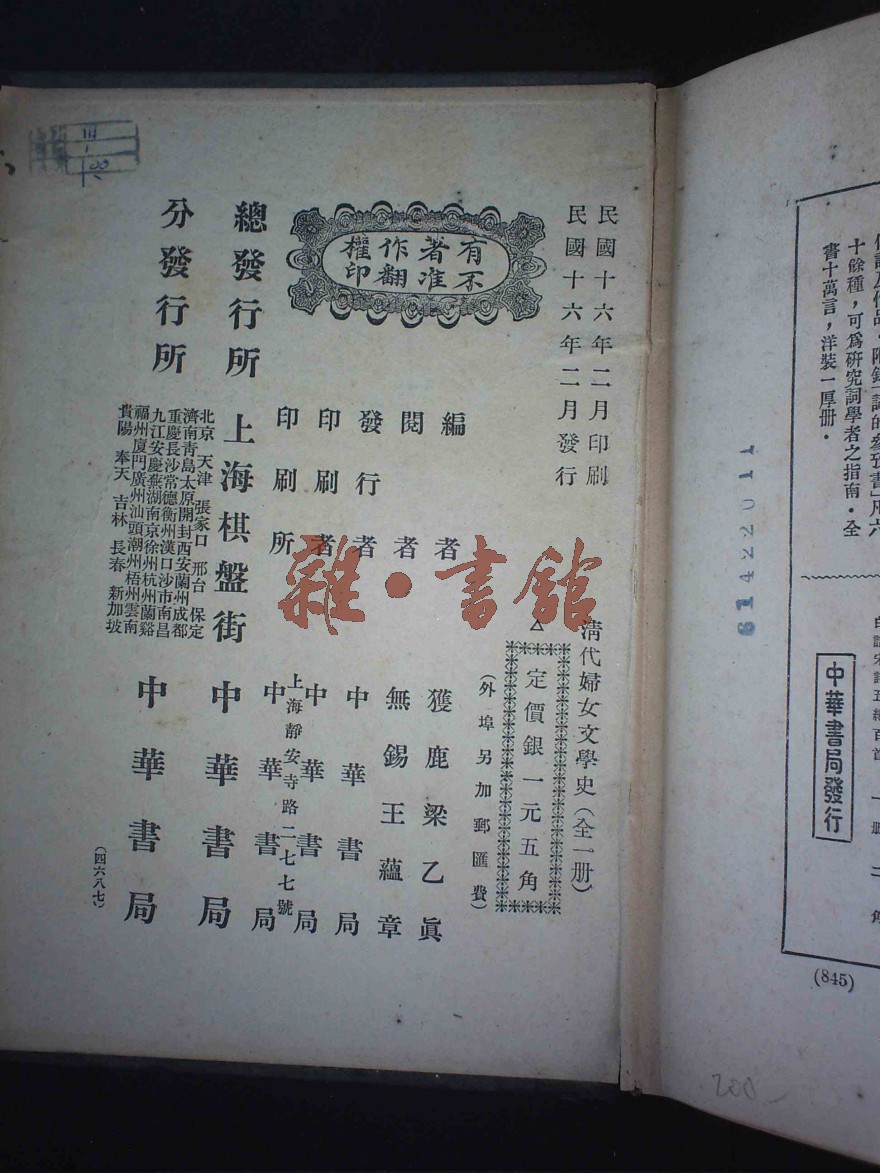 書十萬言，洋裝一厚册．
十餘種，可爲研究詞學者之指南．全
中華書局發行
(845)
6142201
200
民國十六年二月印刷
民國十六年二月發行
有著作權
不准翻印
清代婦女文學史（全一册）
△定價銀一元五角
（外埠另加郵匯費）
編者 獲鹿梁乙眞
閱者 無錫王蘊章
發行者 中華書局
印刷者 中華書局
印刷所 上海靜安寺路二七七號 中華書局
總發行所 上海棋盤街 中華書局
分發行所 中華書局
北京 天津 張家口 邢台 保定
濟南青島太原開封西安蘭州成都
重慶長沙常德衡州漢口沙市南昌
九江安慶蕪湖南京徐州杭州蘭谿
福州廈門廣州汕頭潮州梧州雲南
貴陽 奉天 吉林 長春 新加坡
（四六八七）
雜·書館